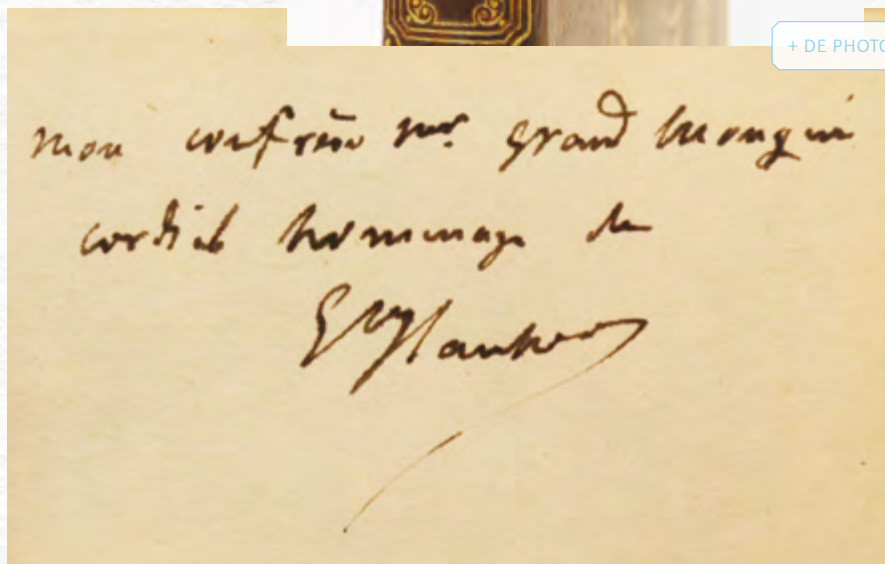 + DE PHOTO
mon confrère Mr. Grand Mougin
cordial hommage de
Gve Flaubert